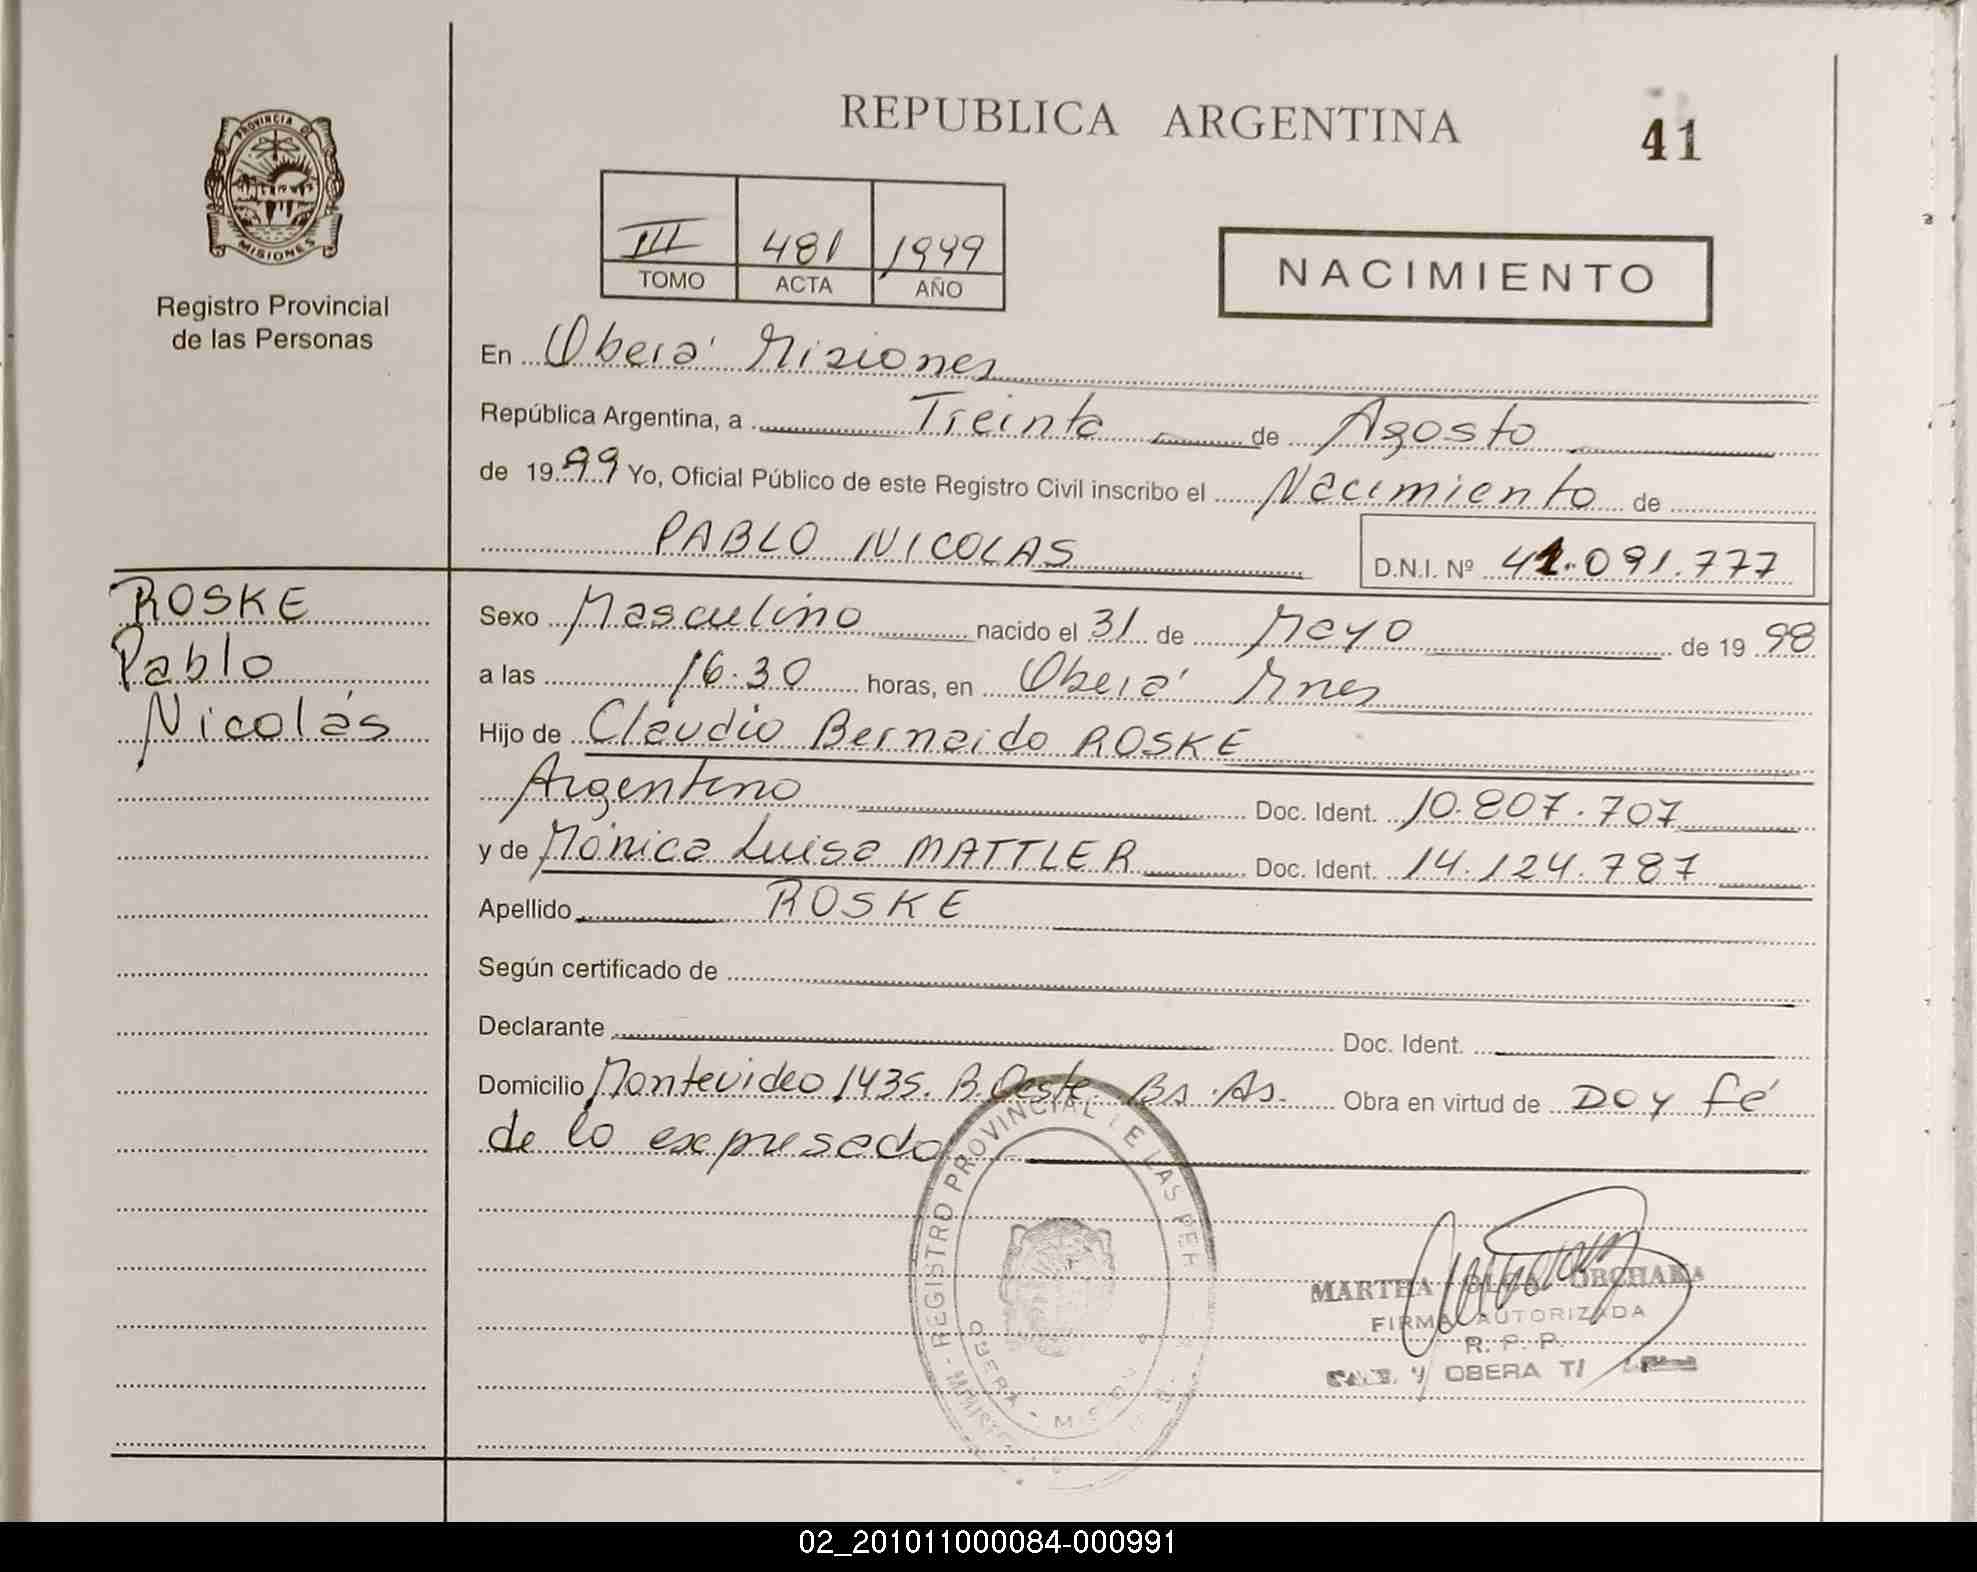 REPUBLICA ARGENTINA
41
PROVINCIA DE
MISIONES
Registro Provincial
de las Personas
III 481 1999
TOMO ACTA AÑO
NACIMIENTO
En Oberá Misiones
República Argentina, a Treinta de Agosto
de 1999 Yo, Oficial Público de este Registro Civil inscribo el Nacimiento de
PABLO NICOLAS D.N.I. Nº 41.091.777
ROSKE
Pablo
Nicolás
Sexo Masculino nacido el 31 de Mayo de 1998
a las 16:30 horas, en Oberá Mnes
Hijo de Claudio Bernardo ROSKE
Argentino Doc. Ident. 10.807.707
y de Mónica Luisa MATTLER Doc. Ident. 14.124.787
Apellido ROSKE
Según certificado de
Declarante Doc. Ident.
Domicilio Montevideo 1435. B. Oeste. Bs. As. Obra en virtud de Doy fé
de lo expresado
REGISTRO PROVINCIAL DE LAS PER
OBERA - MISIONES
MARTHA OLGA
FIRMA AUTORIZADA
R. P. P.
OBERA
02_201011000084-000991